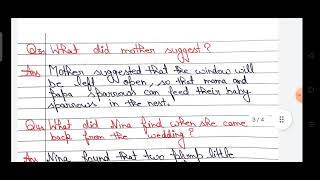 Q3. What did mother suggest?
Ans Mother suggested that the window will
be left open, so that mama and
papa sparrows can feed their baby
sparrows in the nest.
Q4. What did Nina find when she came
back from the wedding?
3/4
Ans Nina found that two plump little